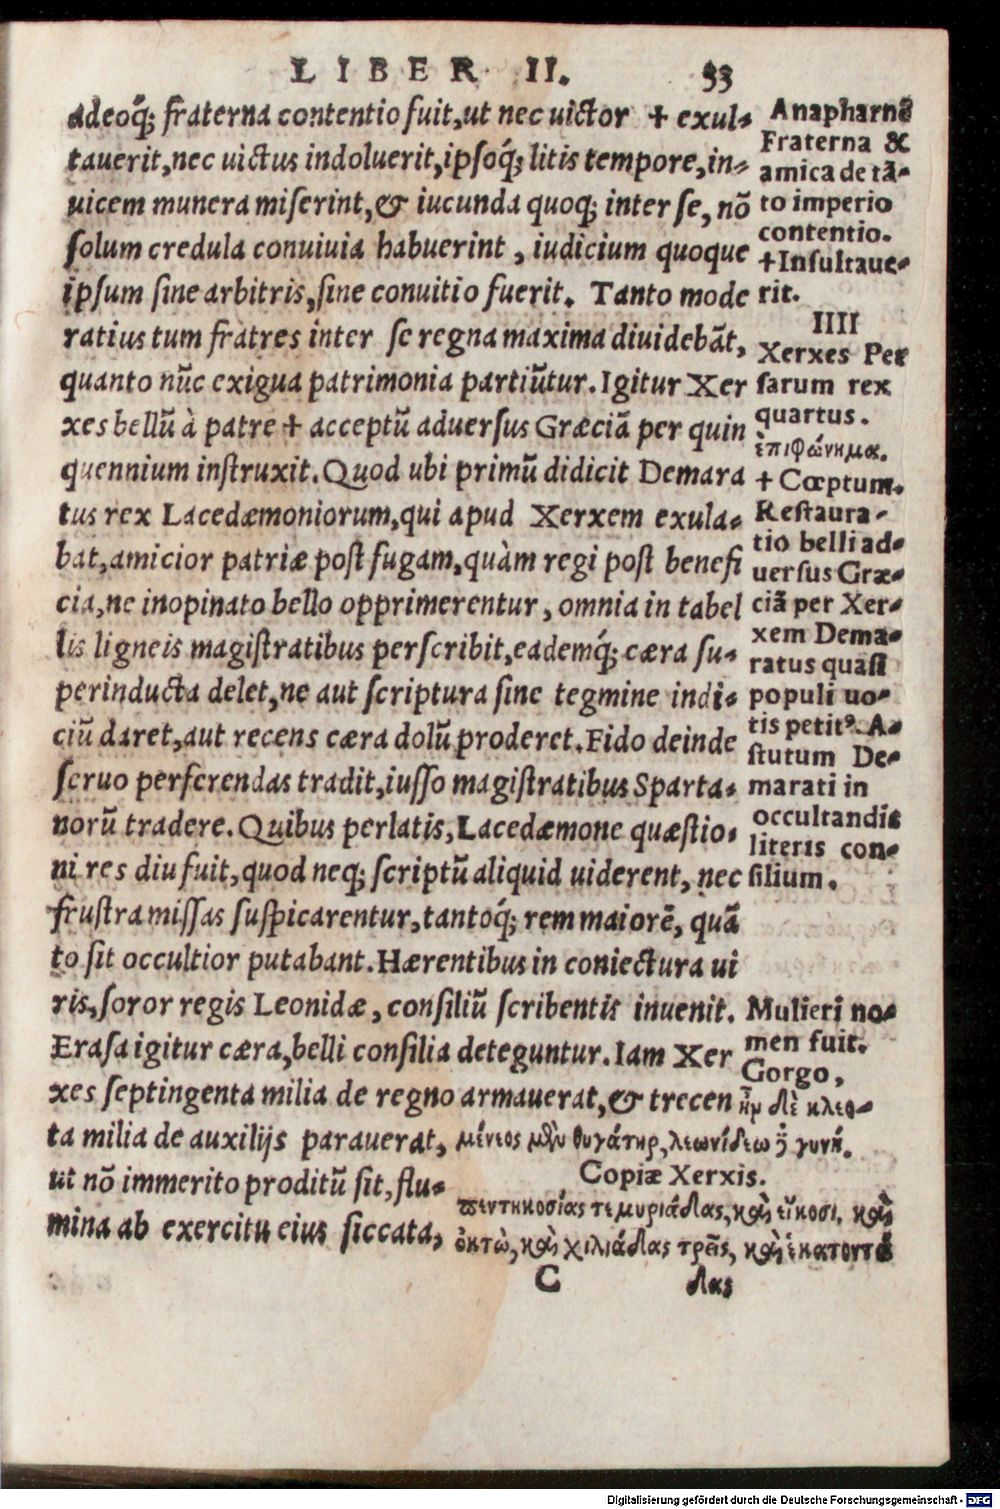 LIBER II. 33
adeoq́; fraterna contentio fuit, ut nec uictor + exul-
tauerit, nec uictus indoluerit, ipsoq́; litis tempore, in-
uicem munera miserint, & iucunda quoq; inter se, nō
solum credula conuiuia habuerint, iudicium quoque
ipsum sine arbitris, sine conuitio fuerit. Tanto mode
ratius tum fratres inter se regna maxima diuidebāt,
quanto nūc exigua patrimonia partiūtur. Igitur Xer
xes bellū à patre + acceptū aduersus Græciā per quin
quennium instruxit. Quod ubi primū didicit Demara
tus rex Lacedæmoniorum, qui apud Xerxem exula-
bat, amicior patriæ post fugam, quàm regi post benefi
cia, ne inopinato bello opprimerentur, omnia in tabel
lis ligneis magistratibus perscribit, eademq́; cæra su-
perinducta delet, ne aut scriptura sine tegmine indi-
ciū daret, aut recens cæra dolū proderet. Fido deinde
seruo perferendas tradit, iusso magistratibus Sparta-
norū tradere. Quibus perlatis, Lacedæmone quæstio-
ni res diu fuit, quod neq; scriptū aliquid uiderent, nec
frustra missas suspicarentur, tantoq́; rem maiorē, quā
to sit occultior putabant. Hærentibus in coniectura ui
ris, soror regis Leonidæ, consiliū scribentis inuenit.
Erasa igitur cæra, belli consilia deteguntur. Iam Xer
xes septingenta milia de regno armauerat, & trecen
ta milia de auxilijs parauerat,
ut nō immerito proditū sit, flu-
mina ab exercitu eius siccata,
Anapharnē
Fraterna &
amica de tā-
to imperio
contentio.
+Insultaue-
rit.
IIII
Xerxes Per
sarum rex
quartus.
ἐπιφώνημα.
+ Cœptum.
Restaura-
tio belli ad-
uersus Græ-
ciā per Xer-
xem Dema-
ratus quasi
populi uo-
tis petitꝰ. A-
stutum De-
marati in
occultandis
literis con-
silium.
Mulieri no-
men fuit.
Gorgo,
ἦν δὲ κλεο-
μένεος μὲν θυγάτηρ, λεωνίδεω δὲ γυνή.
Copiæ Xerxis.
πεντηκοσίας τε μυριάδας, καὶ εἴκοσι, καὶ
ὀκτὼ, καὶ χιλιάδας τρεῖς, καὶ ἑκατοντά
C δας
Digitalisierung gefördert durch die Deutsche Forschungsgemeinschaft - DFG